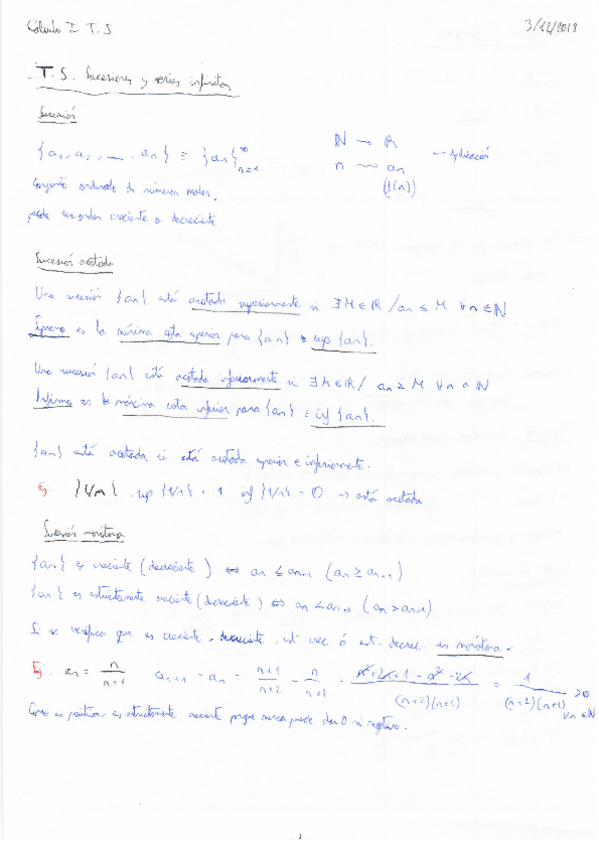 Cálculo I T.5 3/12/2018
T.5. Sucesiones y series infinitas
Sucesión
{a₁, a₂, ..., aₙ} ≡ {aₙ}ₙ₌₁^∞ ℕ → ℝ
n ⇝ aₙ ← aplicación
(f(n))
Conjunto ordenado de números reales,
puede ser orden creciente o decreciente
Sucesión acotada
Una sucesión {aₙ} está acotada superiormente si ∃ M ∈ ℝ / aₙ ≤ M ∀n ∈ ℕ
Supremo es la máxima cota superior para {aₙ} ≡ sup {aₙ}.
Una sucesión {aₙ} está acotada inferiormente si ∃ M ∈ ℝ / aₙ ≥ M ∀n ∈ ℕ
Ínfimo es la máxima cota inferior para {aₙ} ≡ inf {aₙ}.
{aₙ} está acotada si está acotada superior e inferiormente.
Ej. {1/n} sup {1/n} = 1 inf {1/n} = 0 → está acotada
Sucesión monótona
{aₙ} es creciente (decreciente) ⇔ aₙ ≤ aₙ₊₁ (aₙ ≥ aₙ₊₁)
{aₙ} es estrictamente creciente (decreciente) ⇔ aₙ < aₙ₊₁ (aₙ > aₙ₊₁)
Si se verifica que es creciente, decreciente, est. crec. ó est. decrec. es monótona.
Ej. aₙ = n/(n+1) aₙ₊₁ - aₙ = (n+1)/(n+2) - n/(n+1) = (n²+2n+1-n²-2n)/((n+2)(n+1)) = 1/((n+2)(n+1)) > 0 ∀n ∈ ℕ
Como es positiva es estrictamente creciente porque nunca puede dar 0 ni negativo.